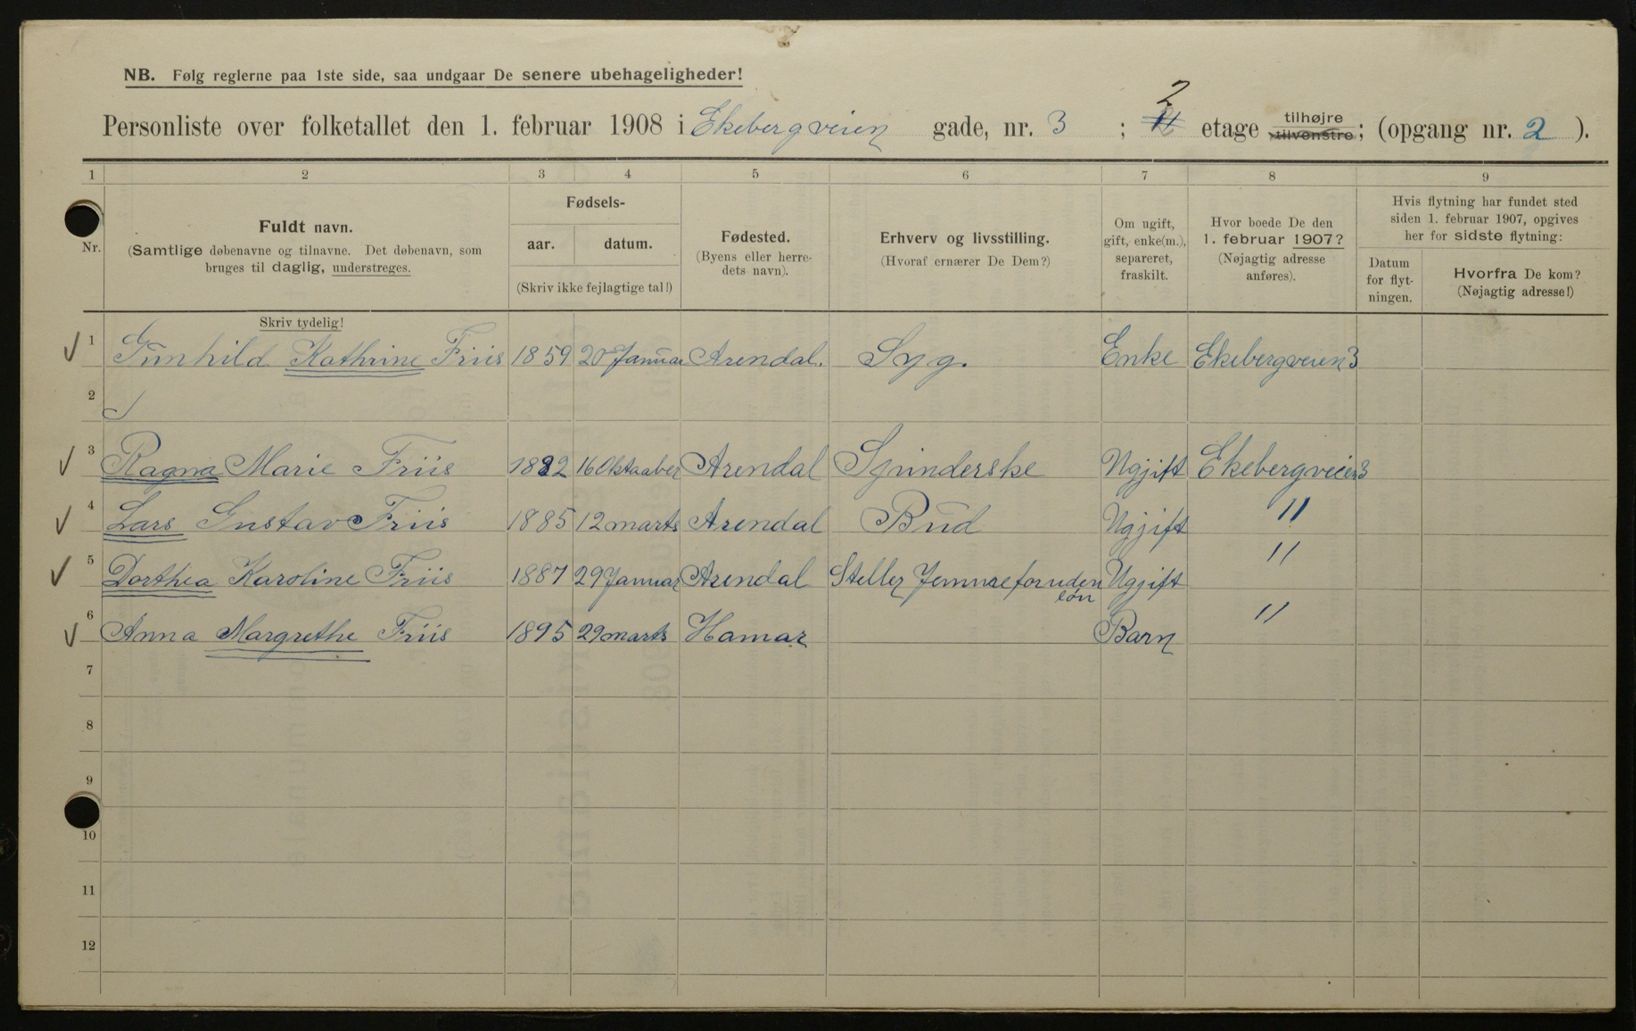 NB. Følg reglerne paa 1ste side, saa undgaar De senere ubehageligheder!
Personliste over folketallet den 1. februar 1908 i Ekebergveien gade, nr. 3 ; 2 etage tilhøjre tilvenstre; (opgang nr. 2 ).
1 2 3 4 5 6 7 8 9
Nr.
Fuldt navn.
(Samtlige døbenavne og tilnavne. Det døbenavn, som
bruges til daglig, understreges.
Skriv tydelig!
Fødsels-
aar. datum.
(Skriv ikke fejlagtige tal!)
Fødested.
(Byens eller herre-
dets navn).
Erhverv og livsstilling.
(Hvoraf ernærer De Dem?)
Om ugift,
gift, enke(m.),
separeret,
fraskilt.
Hvor boede De den
1. februar 1907?
(Nøjagtig adresse
anføres).
Hvis flytning har fundet sted
siden 1. februar 1907, opgives
her for sidste flytning:
Datum
for flyt-
ningen.
Hvorfra De kom?
(Nøjagtig adresse!)
1 Gunhild Kathrine Friis 1859 20 Januar Arendal. Syg. Enke Ekebergveien 3
2
3 Ragna Marie Friis 1882 16 Oktaaber Arendal Spinderske Ugjift Ekebergveien 3
4 Lars Gustav Friis 1885 12 marts Arendal Bud Ugjift "
5 Dorthea Karoline Friis 1887 29 Januar Arendal Steller Jemme foruden løn Ugjift "
6 Anna Margrethe Friis 1895 29 marts Hamar Barn "
7
8
9
10
11
12